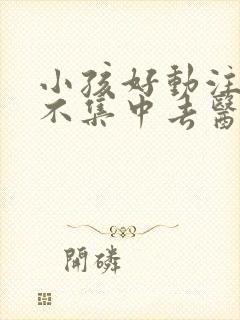 小孩好動注
不集中去醫
開磷